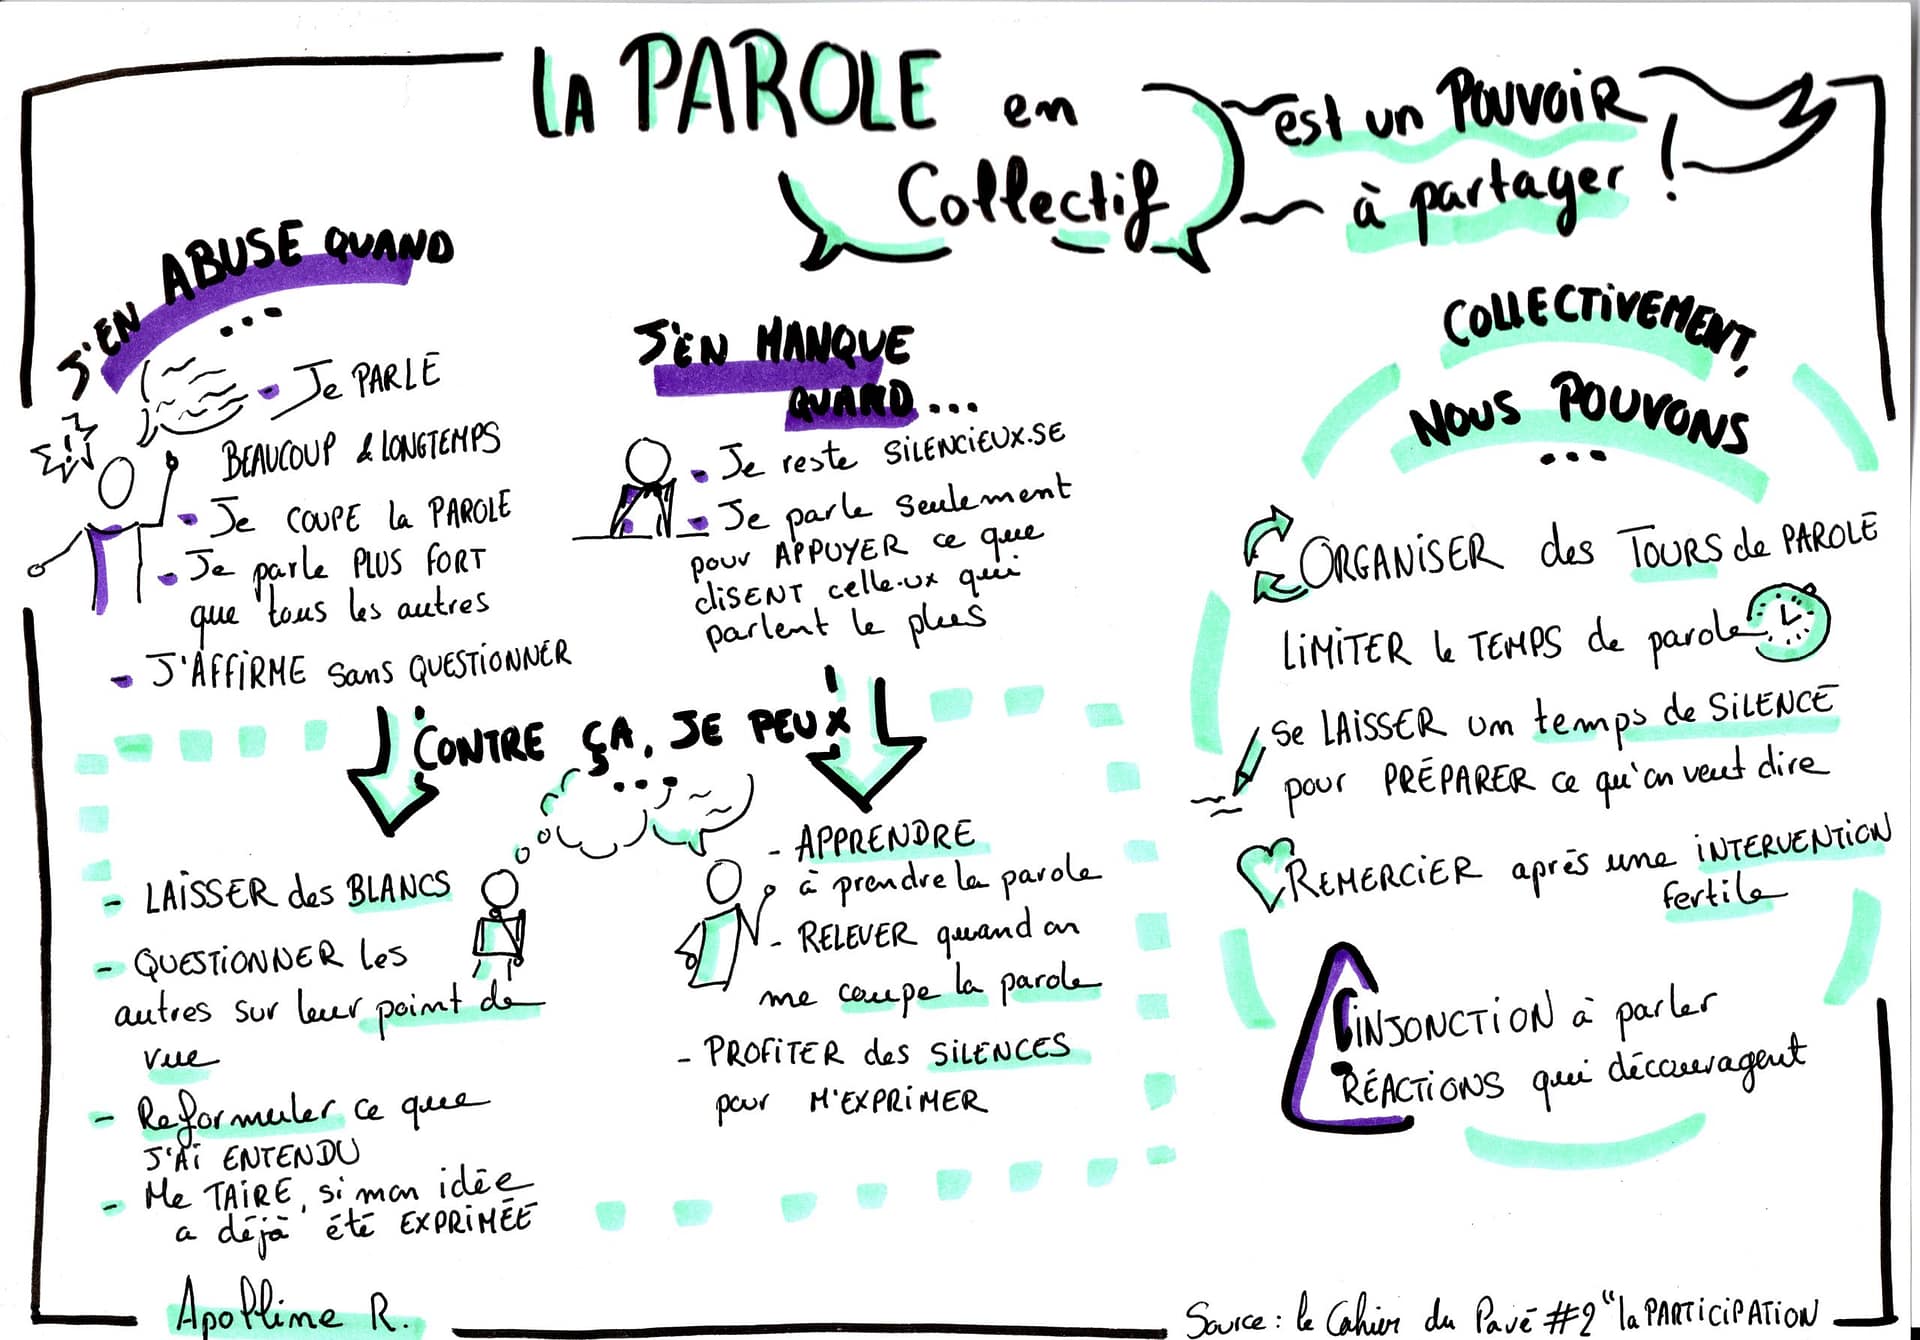 LA PAROLE en
Collectif
est un POUVOIR
à partager !
J'EN ABUSE QUAND
...
- Je PARLE
BEAUCOUP & LONGTEMPS
- Je COUPE la PAROLE
- Je parle PLUS FORT
que tous les autres
- J'AFFIRME sans QUESTIONNER
J'EN MANQUE
QUAND...
- Je reste SILENCIEUX.SE
- Je parle seulement
pour APPUYER ce que
disENT celle.ux qui
parlent le plus
CONTRE ÇA, JE PEUX
...
- LAISSER des BLANCS
- QUESTIONNER les
autres sur leur point de
vue
- Reformuler ce que
J'AI ENTENDU
- Me TAIRE, si mon idée
a déjà été EXPRIMÉE
- APPRENDRE
à prendre la parole
- RELEVER quand on
me coupe la parole
- PROFITER des SILENCES
pour M'EXPRIMER
COLLECTIVEMENT,
NOUS POUVONS
...
ORGANISER des TOURS de PAROLE
LIMITER le TEMPS de parole
Se LAISSER un temps de SILENCE
pour PRÉPARER ce qu'on veut dire
REMERCIER après une INTERVENTION
fertile
! INJONCTION à parler
RÉACTIONS qui découragent
Apolline R.
Source : le Cahier du Pavé #2 "la PARTICIPATION